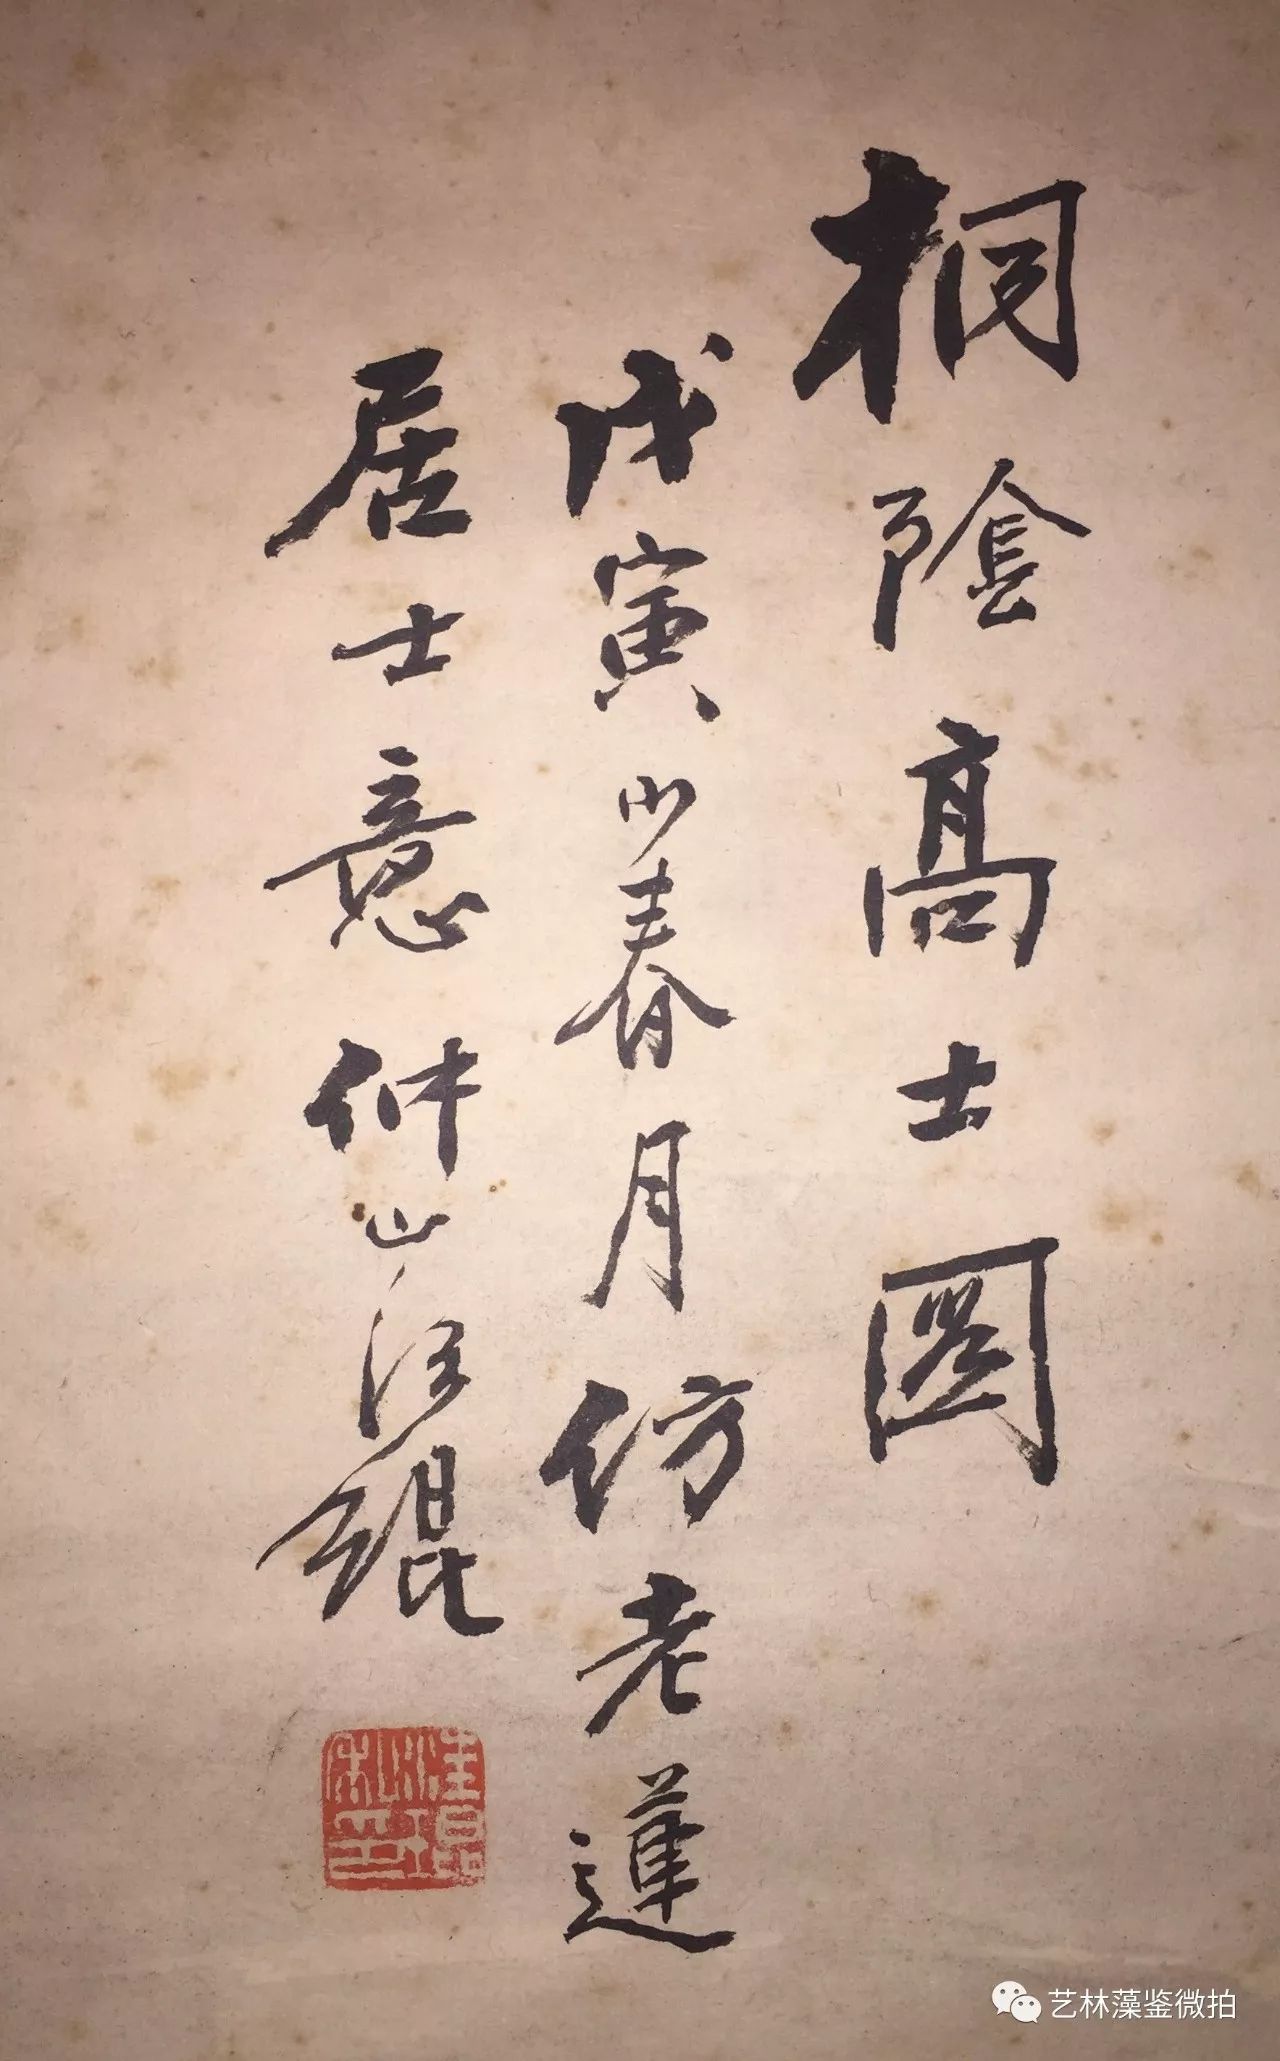 桐陰高士圖
戊寅小春月仿老蓮
居士意仲山汪琨
汪琨私印
艺林藻鉴微拍